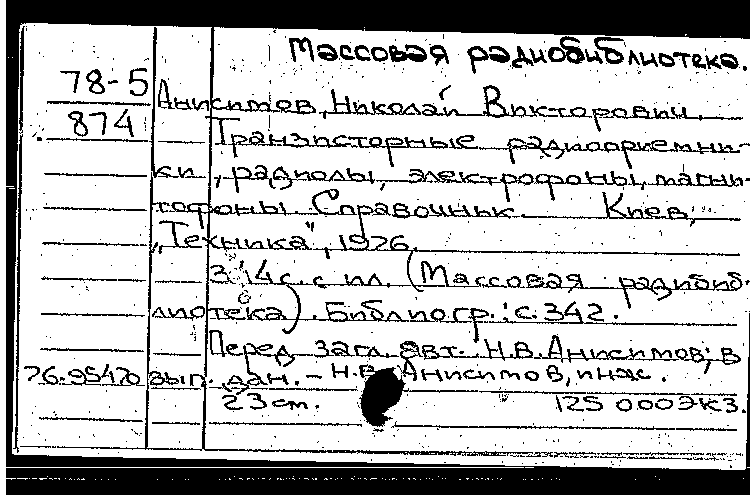 Массовая радиобиблиотека.
78-5
874
Анисимов, Николай Викторович.
Транзисторные радиоприемни-
ки, радиолы, электрофоны, магни-
тофоны Справочник. Киев,
„Техника", 1976.
344 с. с ил. (Массовая радиобиб-
лиотека). Библиогр.: с. 342.
Перед загл. авт.: Н.В. Анисимов; в
76.95470 вып. дан. – Н.В. Анисимов, инж.
23 см. 125 000 экз.